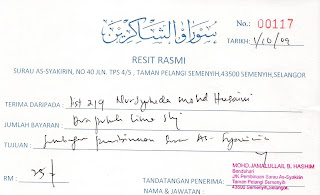 سوراو الشاكرين
No.: 00117
TARIKH: 1/10/09
RESIT RASMI
SURAU AS-SYAKIRIN, NO 40 JLN. TPS 4/5 , TAMAN PELANGI SEMENYIH,43500 SEMENYIH,SELANGOR
TERIMA DARIPADA : mohd
JUMLAH BAYARAN : Dua puluh lima shj
TUJUAN : pembinaan As-Syakirin
RM : 25/-
MOHD.JAMALULLAIL B. HASHIM
Bendahari
J/K Pembinaan Surau As-Syakirin
Taman Pelangi Semenyih
43500 Semenyih, Selangor.
TANDATANGAN PENERIMA :
NAMA & JAWATAN :